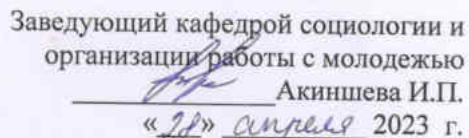 Заведующий кафедрой социологии и
организации работы с молодежью
Акиншева И.П.
«28» апреля 2023 г.